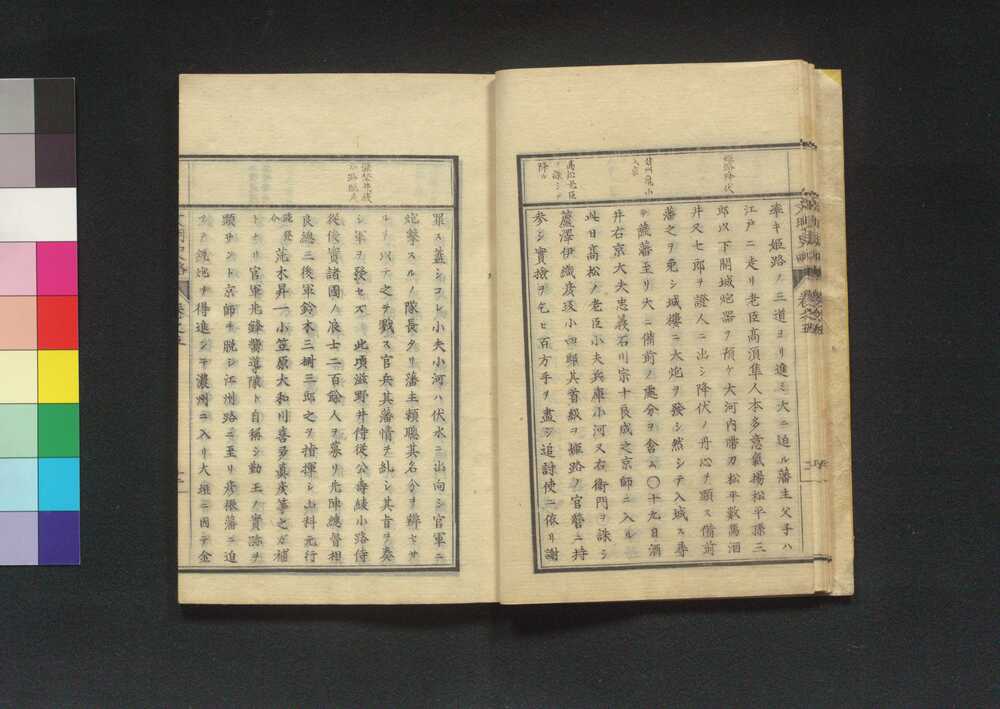 姫路降伏
牽キ姫路ノ三道ヨリ進ミ大ニ迫ル藩主父子ハ
江戸ニ走リ老臣高須隼人本多意氣揚松平孫三
郎以下開城炮器ヲ預ケ大河内帯刀松平數馬酒
井又七郎ヲ證人ニ出シ降伏ノ丹心ヲ顕ス備前
藩之ヲ乗シ城樓ニ大炮ヲ發シ然シテ入城ス尋
テ諸藩至リ大ニ備前ノ處分ヲ含ム〇十九日酒
井右京大夫忠義石川宗十良成之京師ニ入ル
此日高松ノ老臣小夫兵庫小河又右衛門ヲ誅シ
蘆澤伊織彦坂小四郎其首級ヲ姫路ノ官營ニ持
参シ實撿ヲ乞ヒ百方手ヲ盡シ追討使ニ依リ謝
高松老臣
ヲ誅シテ
降ル
罪ス蓋シコレ小夫小河ハ伏水ニ出向シ官軍ニ
炮撃スルノ隊長タリ藩主頼聰其名分ヲ辨セサ
ルヲ以テ之ヲ戮ス官兵其藩情ヲ糺シ其旨ヲ奏
シ軍ヲ發セズ 此頃滋野井侍従公壽綾小路侍
従俊實諸國ノ浪士二百餘人ヲ募リ先陣總督相
良總三後軍鈴木三樹三郎之ヲ指揮シ山科元行
荒木昇一小笠原大和川喜多真彦等之カ補
トナリ官軍先鋒嚮導隊ト自稱シ勤王ノ實跡ヲ
顕サント京師ヲ脱シ江洲路ニ至リ彦根藩ニ迫
テ銃炮ヲ得進シテ濃州ニ入リ大垣ニ因テ金